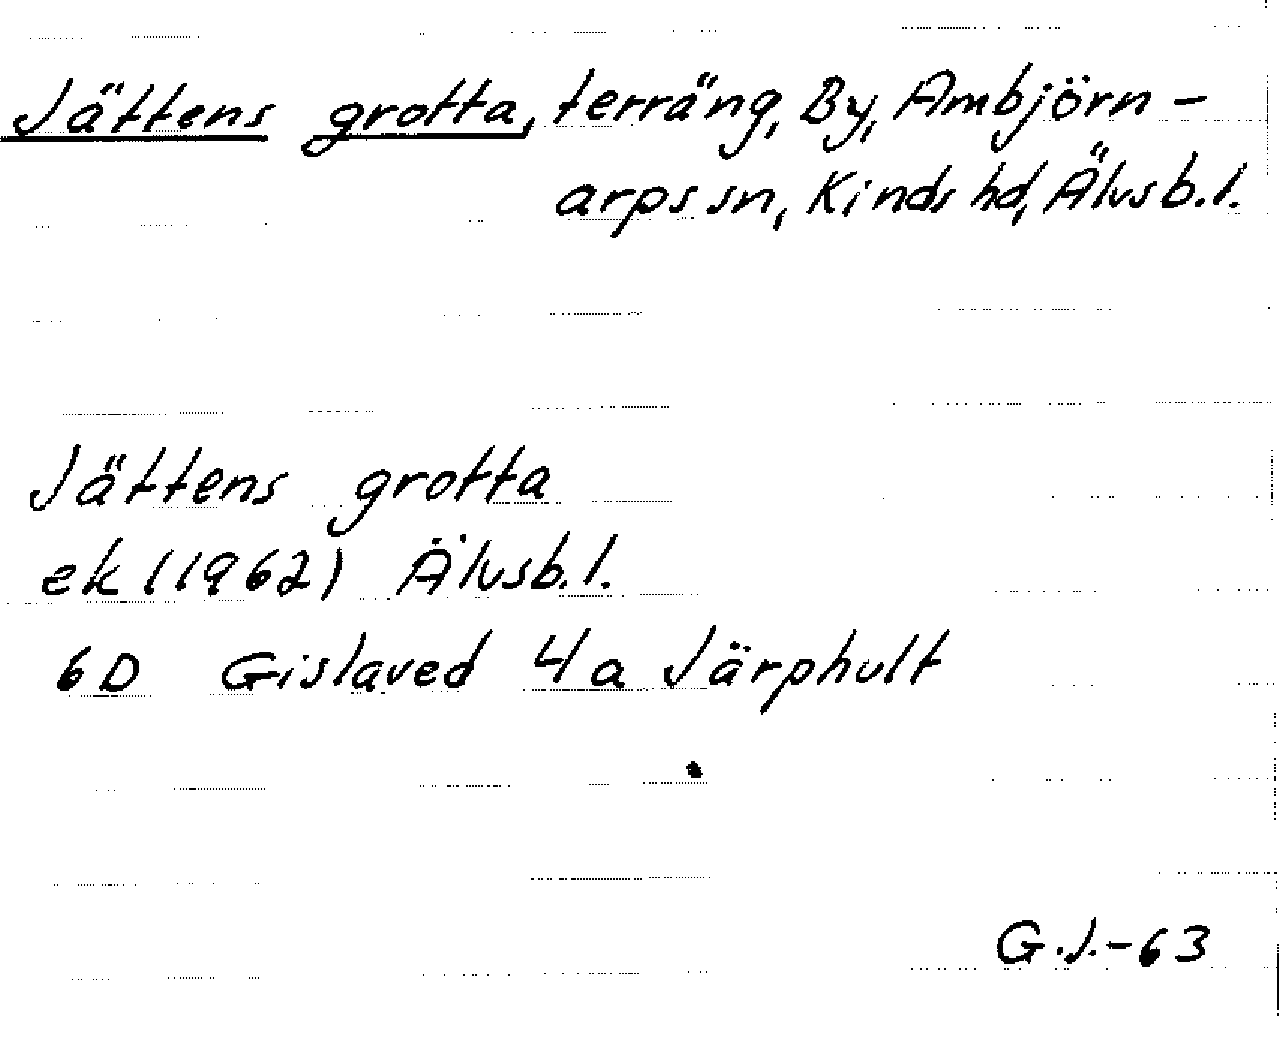 Jättens grotta, terräng, By, Ambjörn-
arps sn, Kinds hd, Älvsb.l.
Jättens grotta
ek (1962) Älvsb.l.
6D Gislaved 4a Järphult
G.J.-63